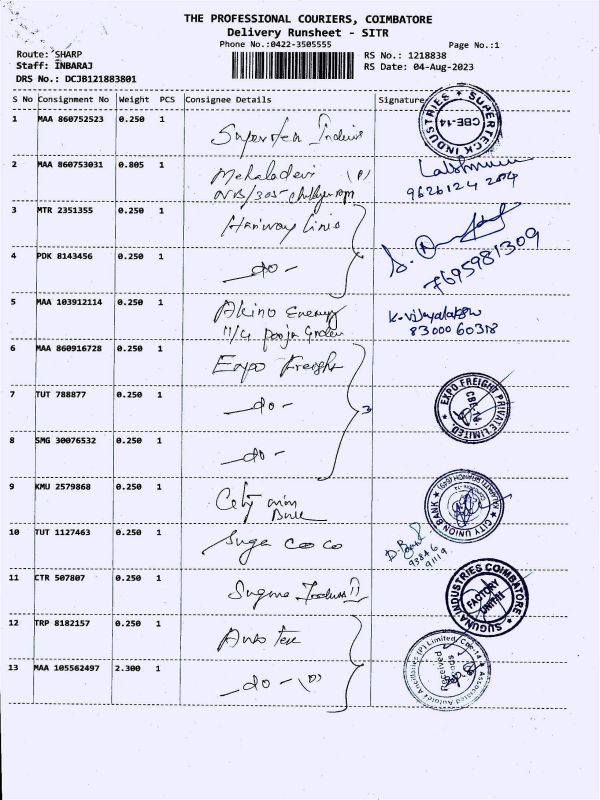 THE PROFESSIONAL COURIERS, COIMBATORE
Delivery Runsheet - SITR
Phone No.:0422-3505555 Page No.:1
Route: SHARP RS No.: 1218838
Staff: INBARAJ RS Date: 04-Aug-2023
DRS No.: DCJB121883801
S No Consignment No Weight PCS Consignee Details Signature
1 MAA 860752523 0.250 1
SUPERTECK INDUSTRIES CBE-14
2 MAA 860753031 0.805 1 Mehaladevi (P)
9626124 204
3 MTR 2351355 0.250 1
4 PDK 8143456 0.250 1 -do-
7695981309
5 MAA 103912114 0.250 1 Akino Energy
11/4 Pooja Garden
K. Vijayalakshmi
83000 60318
6 MAA 860916728 0.250 1 Expo Freight
7 TUT 788877 0.250 1 -do- 3
EXPO FREIGHT PRIVATE LIMITED. CBE-14
8 SMG 30076532 0.250 1 -do-
9 KMU 2579868 0.250 1 City union
Bank
CITY UNION BANK
10 TUT 1127463 0.250 1 Suga COCO
93846
91119
11 CTR 507807 0.250 1 Suguna Industries
SUGUNA INDUSTRIES COIMBATORE
FACTORY
12 TRP 8182157 0.250 1
13 MAA 105562497 2.300 1 -do- (P)
Associated Autotex Ancillaries (P) Limited, Cbe-14
Goods
Received